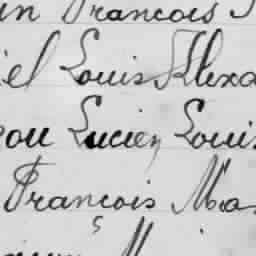 in François
iel Louis Alexa
cou Lucien Louis
François Ma